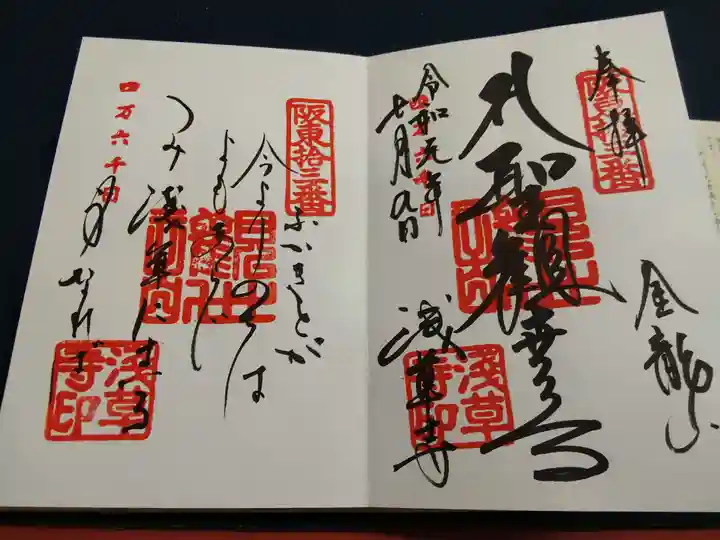 奉拝
阪東拾三番
金龍山
礼聖観世音
淺草寺
淺草寺印
令和元年
七月九日
阪東拾三番
ふかきとが
今よりのちは
よもあらじ
つみ浅草にまいる
身なれば
四万六千日
淺草寺印